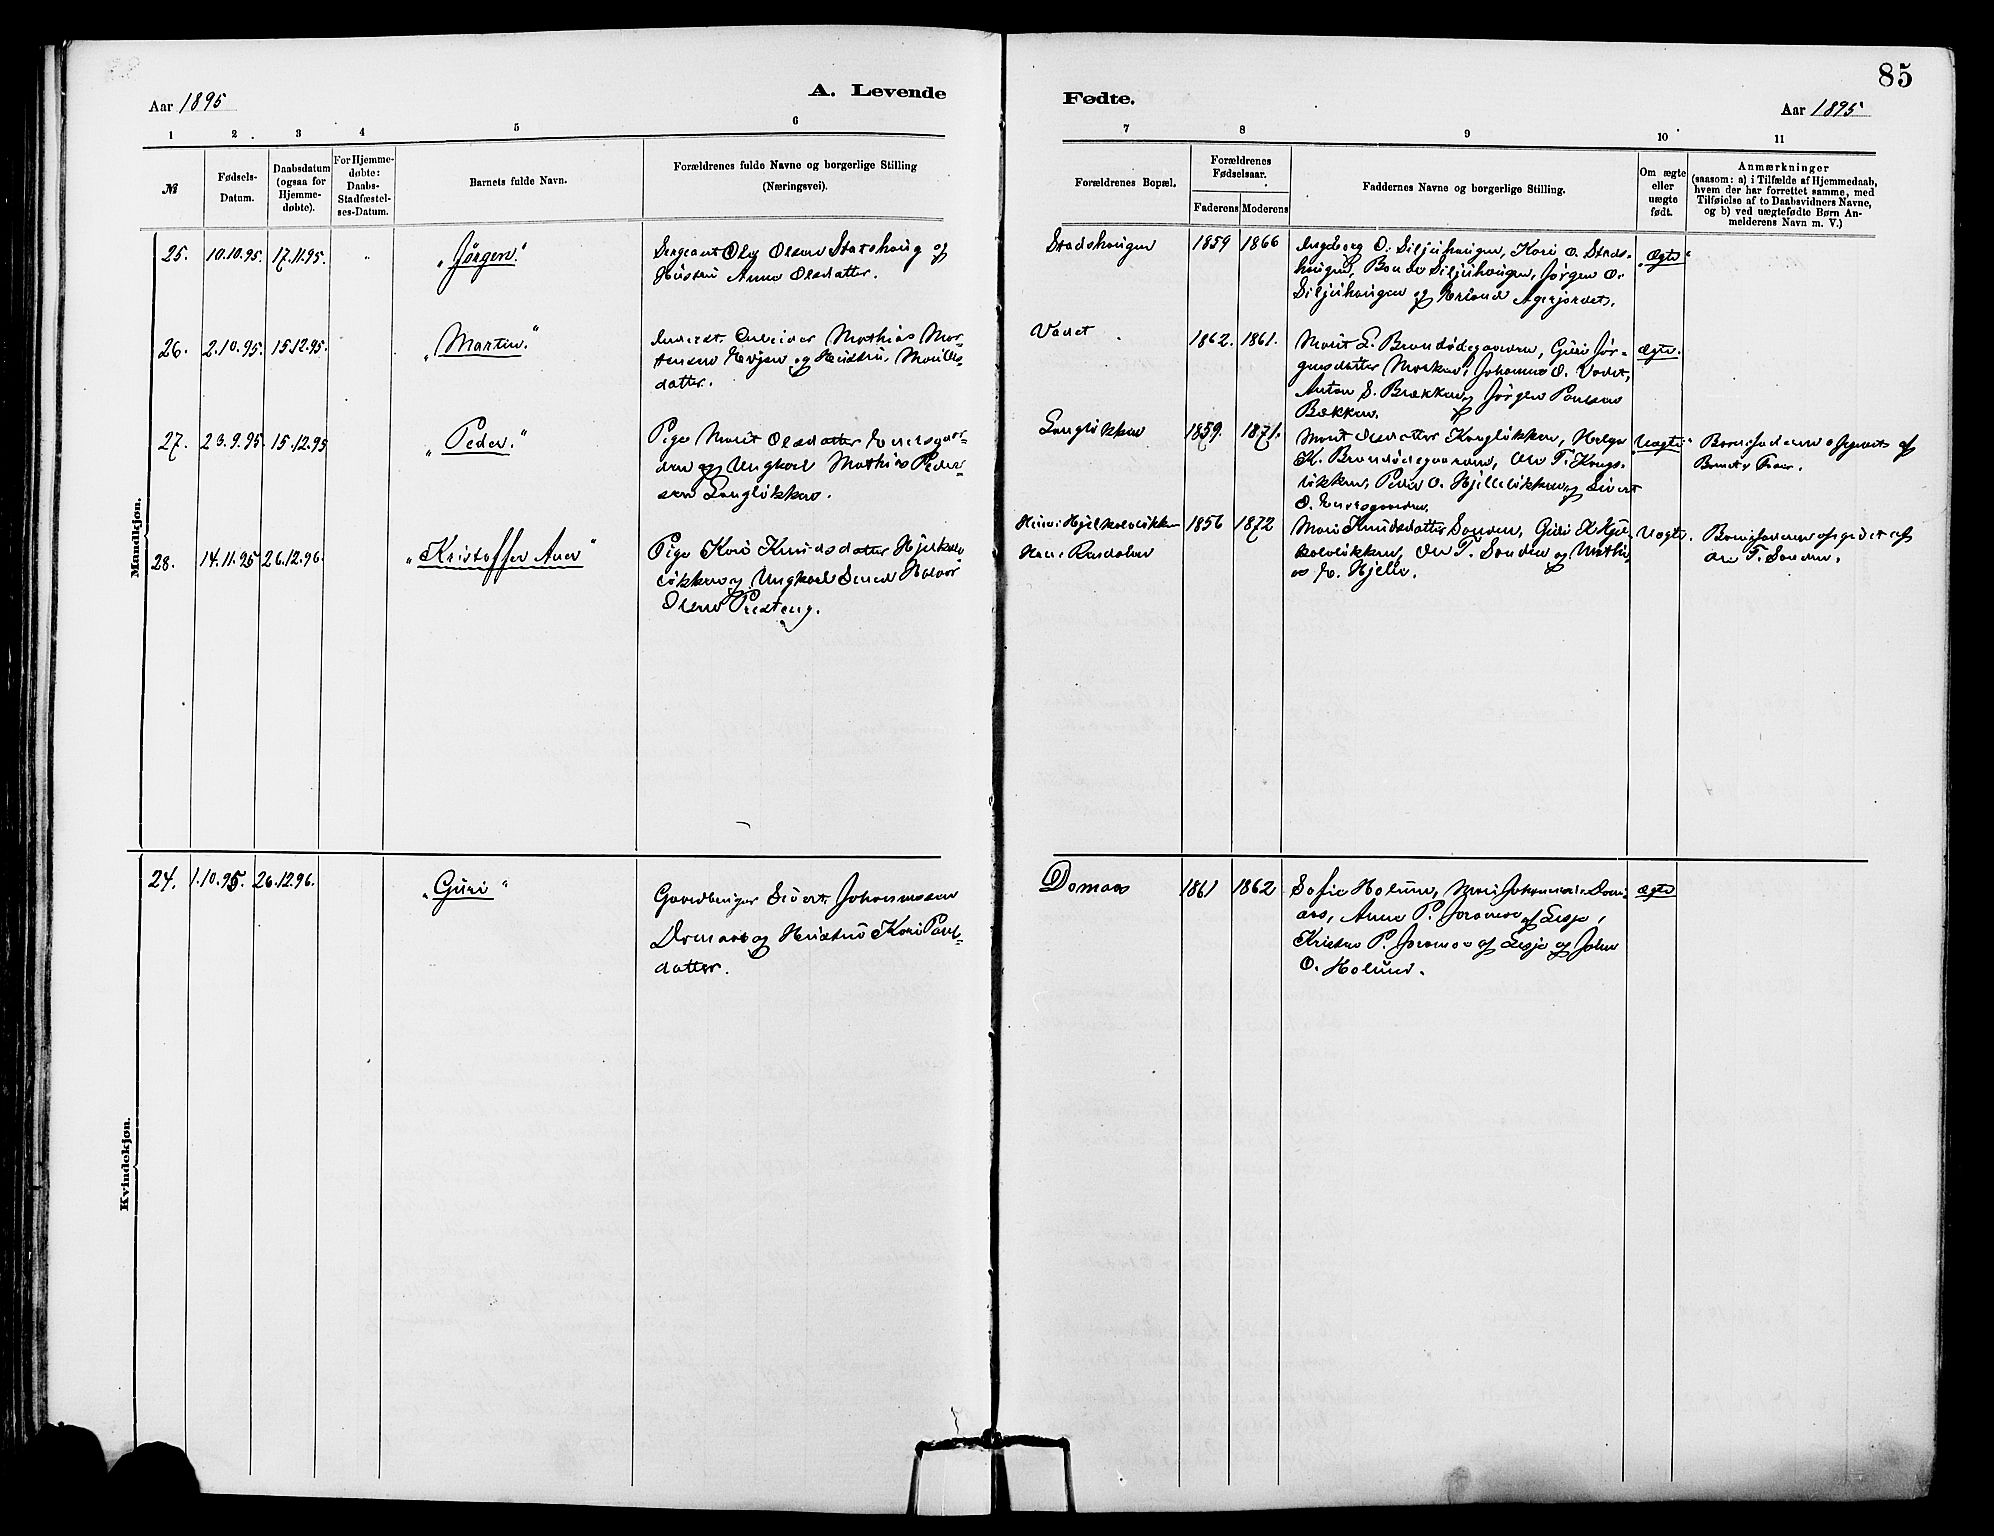 85
Aar 1895
A. Levende
Fødte.
Aar 1895
1 2 3 4 5 6
7 8 9 10 11
№
Fødsels-
Datum.
Daabsdatum
(ogsaa for
Hjemme-
døbte).
For Hjemme-
døbte:
Daabs-
Stadfæstel-
ses-Datum.
Barnets fulde Navn.
Forældrenes fulde Navne og borgerlige Stilling
(Næringsvei).
Forældrenes Bopæl.
Forældrenes
Fødselsaar.
Faderens Moderens
Faddernes Navne og borgerlige Stilling.
Om ægte
eller
uægte
født.
Anmærkninger
(saasom: a) i Tilfælde af Hjemmedaab,
hvem der har forrettet samme, med
Tilføielse af to Daabsvidners Navne,
og b) ved uægtefødte Børn An-
melderens Navn m. V.)
Mandkjøn.
25. 10.10.95. 17.11.95. "
"Jørgen."
Sergeant Ole Olsen Statshaug og
Hustru Anne Olsdatter.
Stadshaugen
1859 1866
Ingeborg O. Siljuhaugen, Kari O. Stads-
haugen, Siljuhaugen, Jørgen O.
Siljuhaugen og Erland Agerjordet.
"Ægte"
26. 2.10.95. 15.12.95.
"Martin."
Arbeider Mathias Mor-
tensen og Hustru, Marit
datter.
Vadet
1862. 1861.
Marit E. Brændødegaarden, Guri Jør-
gensdatter Johannes O. Vadet,
Anton S. Brækken, Jørgen Paulsen
Bækken.
Ægte.
27. 23.9.95. 15.12.95
"Peder."
Pige Marit Olsdatter
og Ungkarl Mathias Peder-
sen Langløkken.
Langløkken
1859. 1871.
Marit Olsdatter Langløkken, Helge
K. Brændødegaarden, Ole T. Kongs-
løkken, Peder O. Hjelleløkken og Sivert
O.
"Uægte"
Barnefaderen opgivet af
28. 14.11.95 26.12.96.
"Kristoffer Aner"
Pige Kari Knudsdatter Hjerkin-
løkken og Ungkarl Smed Halvor
Olsen Presteng.
1856 1872
Mari Knudsdatter Sanden, Guri K.
Ole T. Sanden og Mathi-
as E. Hjelle.
Uægte.
Barnefaderen opgivet af
Ole T. Sanden.
Kvindekjøn.
24. 1.10.95. 26.12.96.
"Guri"
Gaardbruger Sivert Johannessen
Domaas og Hustru Kari Paul-
datter.
Domaas
1861 1862
Sofie Holum, Mari Johannesd. Dom-
aas, Anne P. Joramo af Lesje,
Kristen P. Joramo af Lesje og John
O. Holum.
Ægte